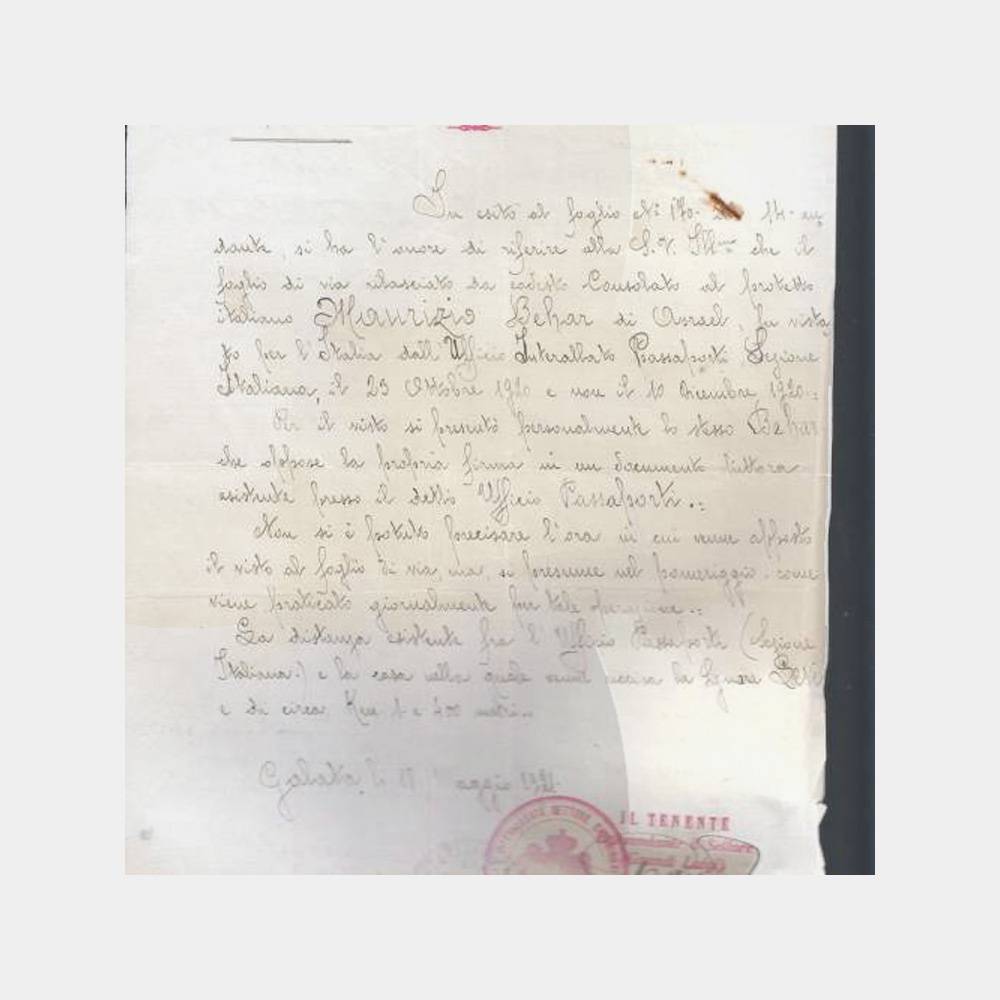 In esito al foglio No 170 14 an
dante, si ha l'onore di riferire alla S.V. Ill.ma che il
foglio di via rilasciato da codesto Consolato al protetto
italiano Maurizio Behar di Asrael, fu vista
to per l'Italia dall'Ufficio Interalleato Passaporti Sezione
Italiana, il 23 Ottobre 1920 e non il 10 Dicembre 1920.
Per il visto si presentò personalmente lo stesso Behar
che appose la propria firma in un documento tuttora
esistente presso il detto Ufficio Passaporti.
Non si è potuto precisare l'ora in cui venne apposto
il visto al foglio di via, ma, si presume nel pomeriggio come
viene praticato giornalmente per tale operazione.
La distanza esistente fra l'Ufficio Passaporti (Sezione
Italiana) e la casa nella quale venne uccisa la Signora
è di circa Km 1 e 200 metri.
Galata, li aggio 1921
IL TENENTE